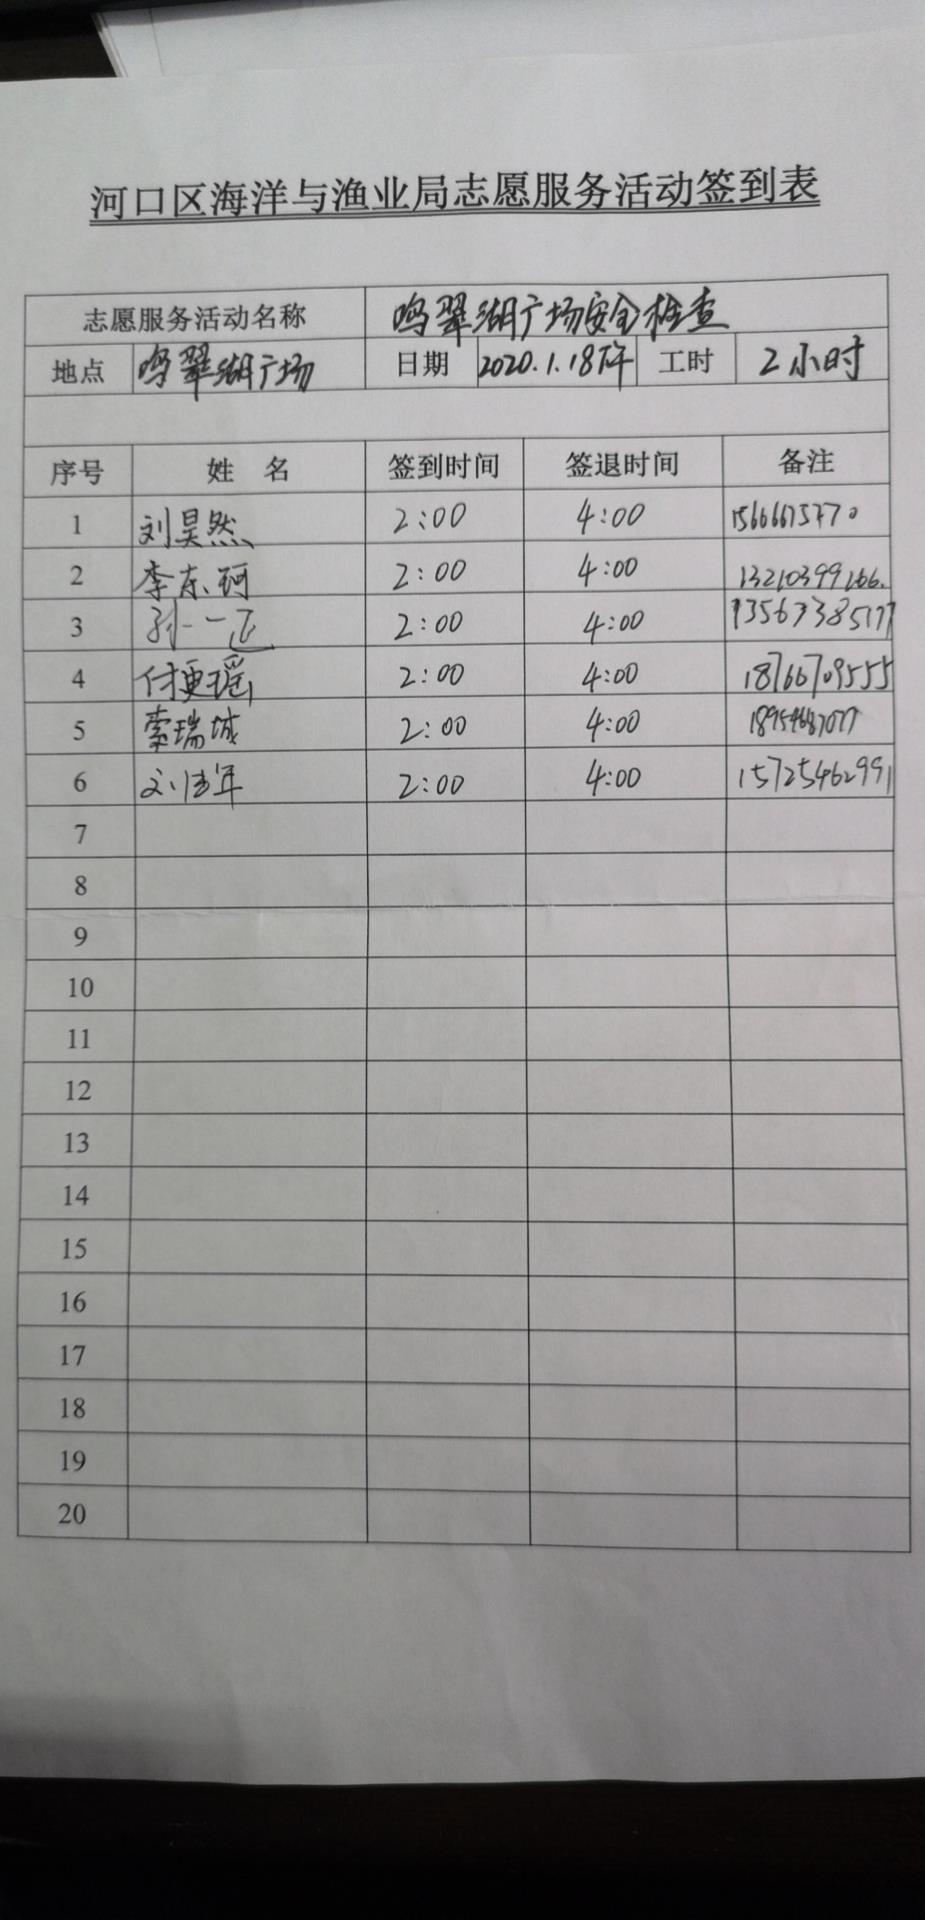 河口区海洋与渔业局志愿服务活动签到表
志愿服务活动名称 鸣翠湖广场安全检查
地点 鸣翠湖广场 日期 2020.1.18下午 工时 2小时
序号 姓名 签到时间 签退时间 备注
1 刘昊然 2:00 4:00 15666675770
2 李东珂 2:00 4:00 13210399266.
3 孙一 2:00 4:00
4 付更瑶 2:00 4:00 18766709555
5 索瑞城 2:00 4:00
6 刘 年 2:00 4:00 15725462991
7
8
9
10
11
12
13
14
15
16
17
18
19
20